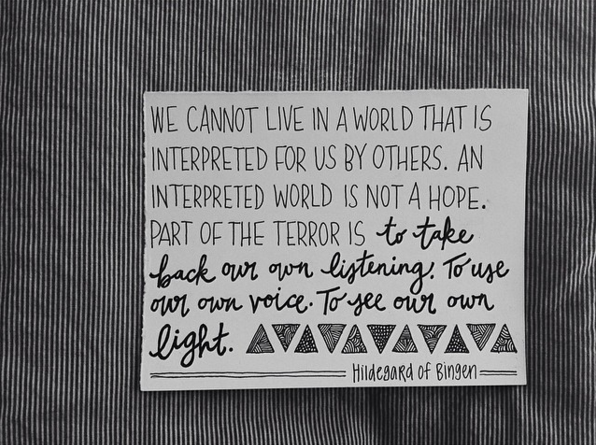 WE CANNOT LIVE IN A WORLD THAT IS
INTERPRETED FOR US BY OTHERS. AN
INTERPRETED WORLD IS NOT A HOPE.
PART OF THE TERROR IS to take
back our own listening. To use
our own voice. To see our own
light.
Hildegard of Bingen